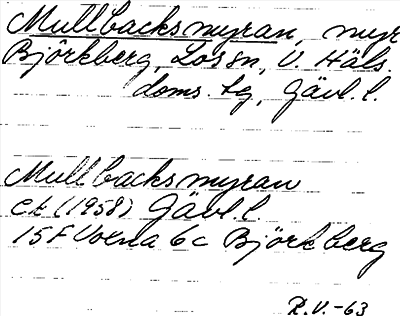 Mullbacksmyran, myr
Björkberg, Los sn, V. Häls.
doms. tg, Gävl. l.
Mullbacksmyran
ek (1958) Gävl. l.
15F Voxna 6c Björkberg
R.V. -63